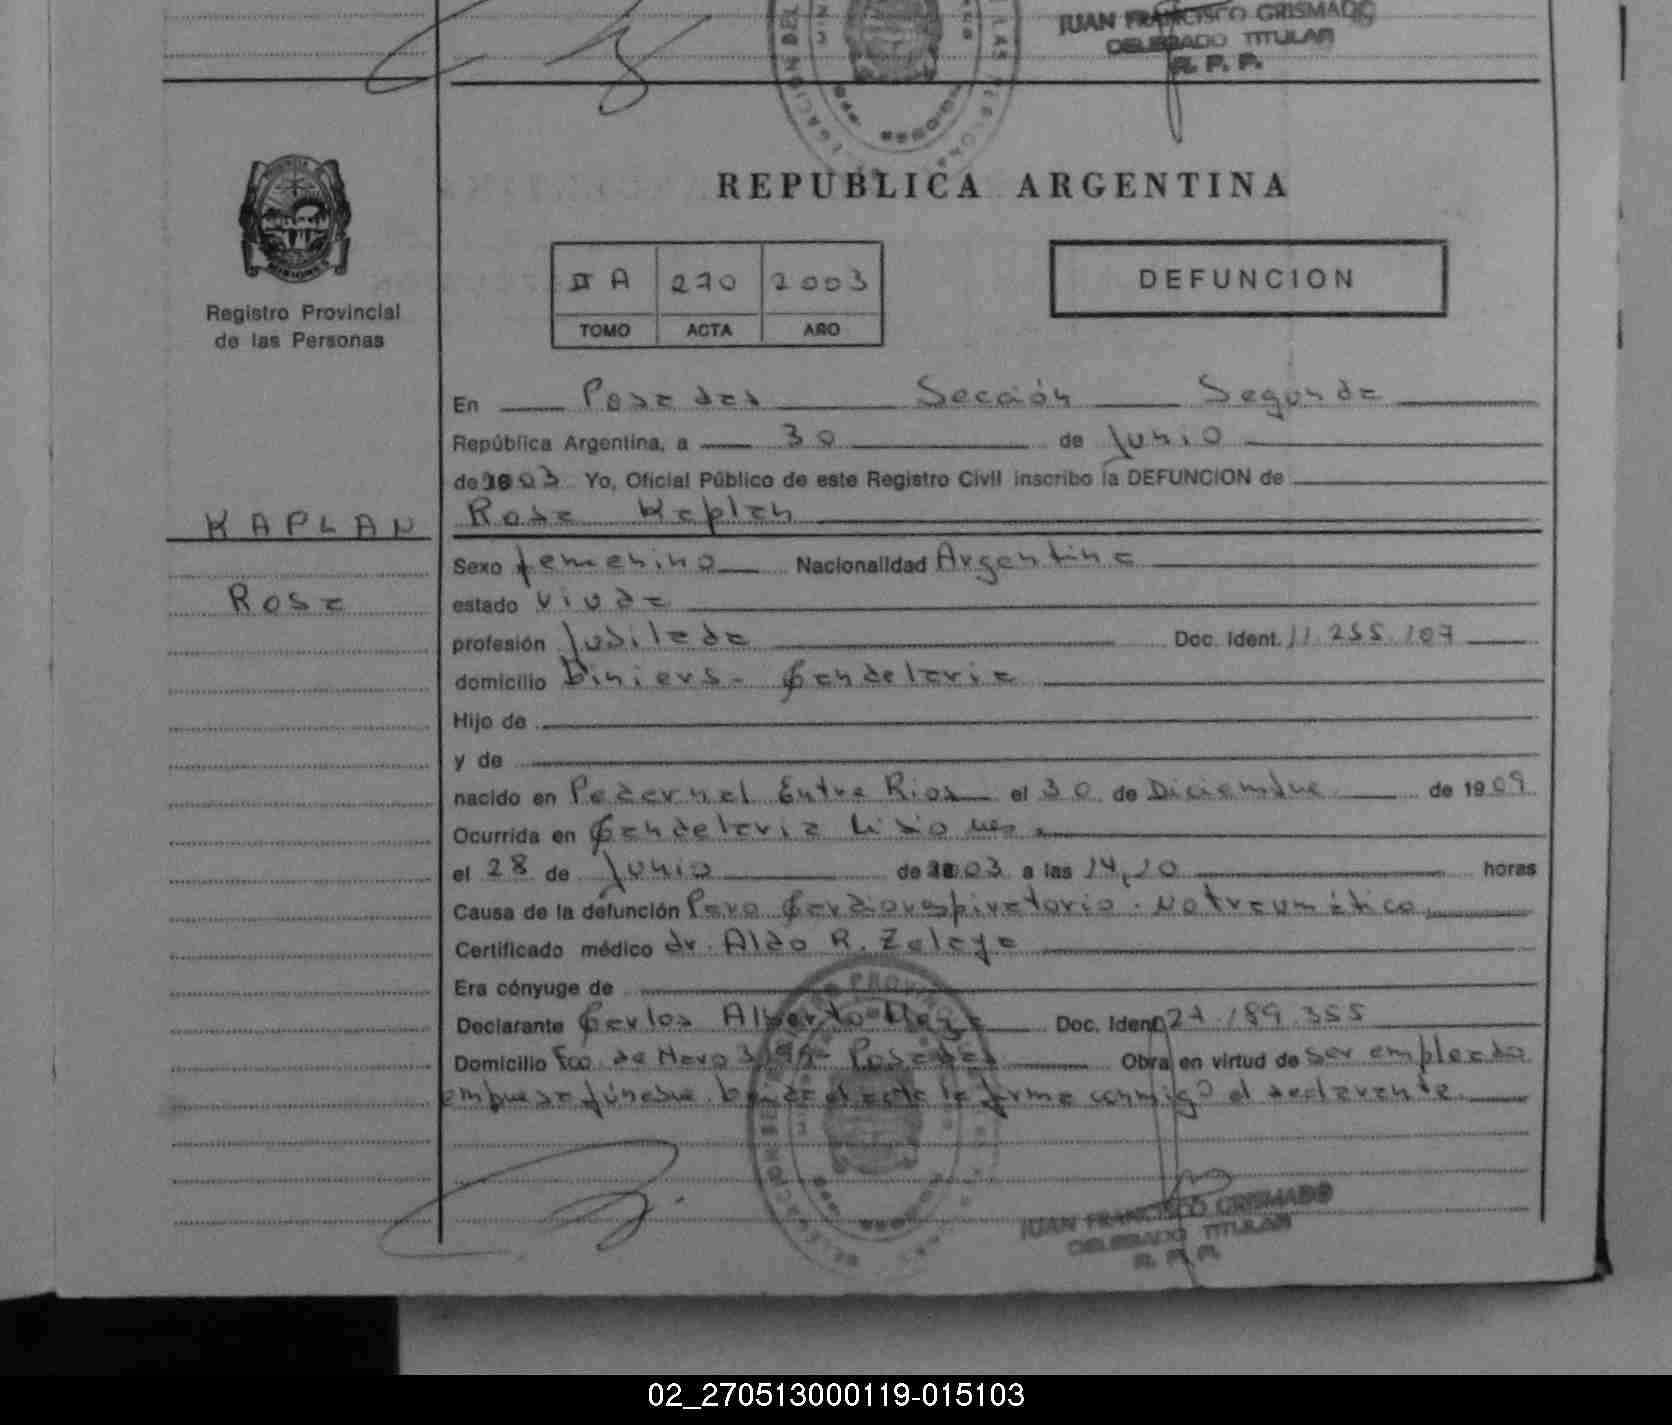 JUAN FRANCISCO GRISMADO
DELEGADO TITULAR
R. P. P.
REPUBLICA ARGENTINA
Registro Provincial
de las Personas
II A 270 2003
TOMO ACTA AÑO
DEFUNCION
En Posadas Sección Segunda
República Argentina, a 30 de Junio
de 2003 Yo, Oficial Público de este Registro Civil inscribo la DEFUNCION de
KAPLAN
Rosa Kaplan
Sexo femenino Nacionalidad Argentina
Rosa
estado viuda
profesión Jubilada Doc. Ident. 11.255.107
domicilio Candelaria
Hijo de
y de
nacido en Pedernal Entre Rios el 30 de Diciembre de 1909
Ocurrida en Candelaria Misiones
el 28 de Junio de 2003 a las horas
Causa de la defunción Paro Cardiorespiratorio. No traumático
Certificado médico dr. Aldo R. Zelaya
Era cónyuge de
Declarante Carlos Alberto Doc. Ident. 27.189.355
Domicilio Fco. de Haro Posadas Obra en virtud de ser empleado
empresa fúnebre. el acta la firma conmigo el declarante.
JUAN FRANCISCO GRISMADO
DELEGADO TITULAR
R. P. P.
02_270513000119-015103